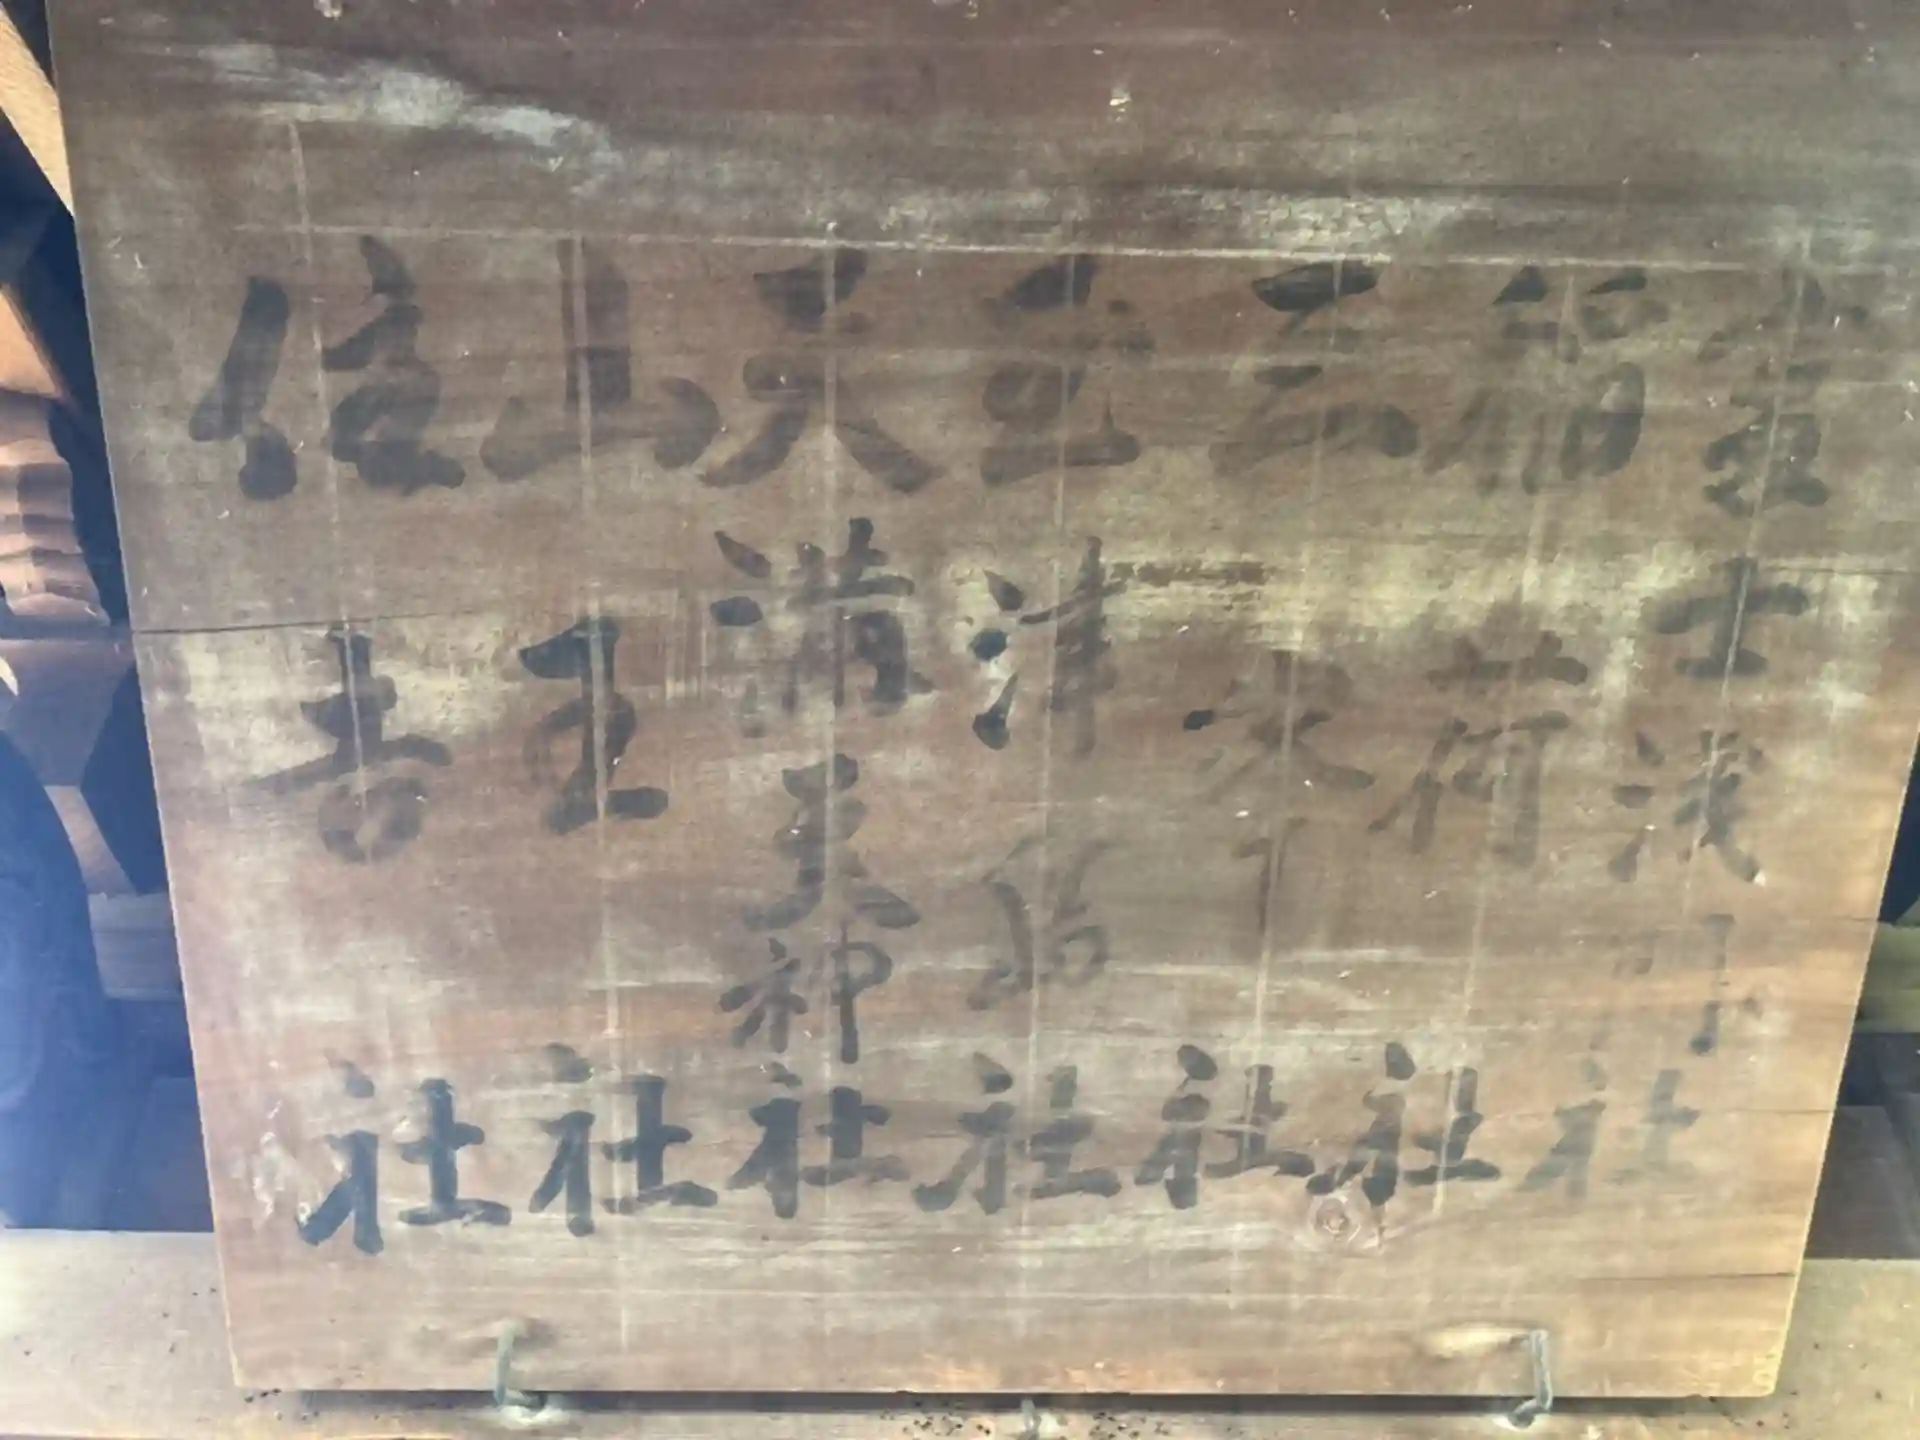 富士浅間社
稲荷社
三峯社
意津嶋社
天満天神社
山王社
住吉社